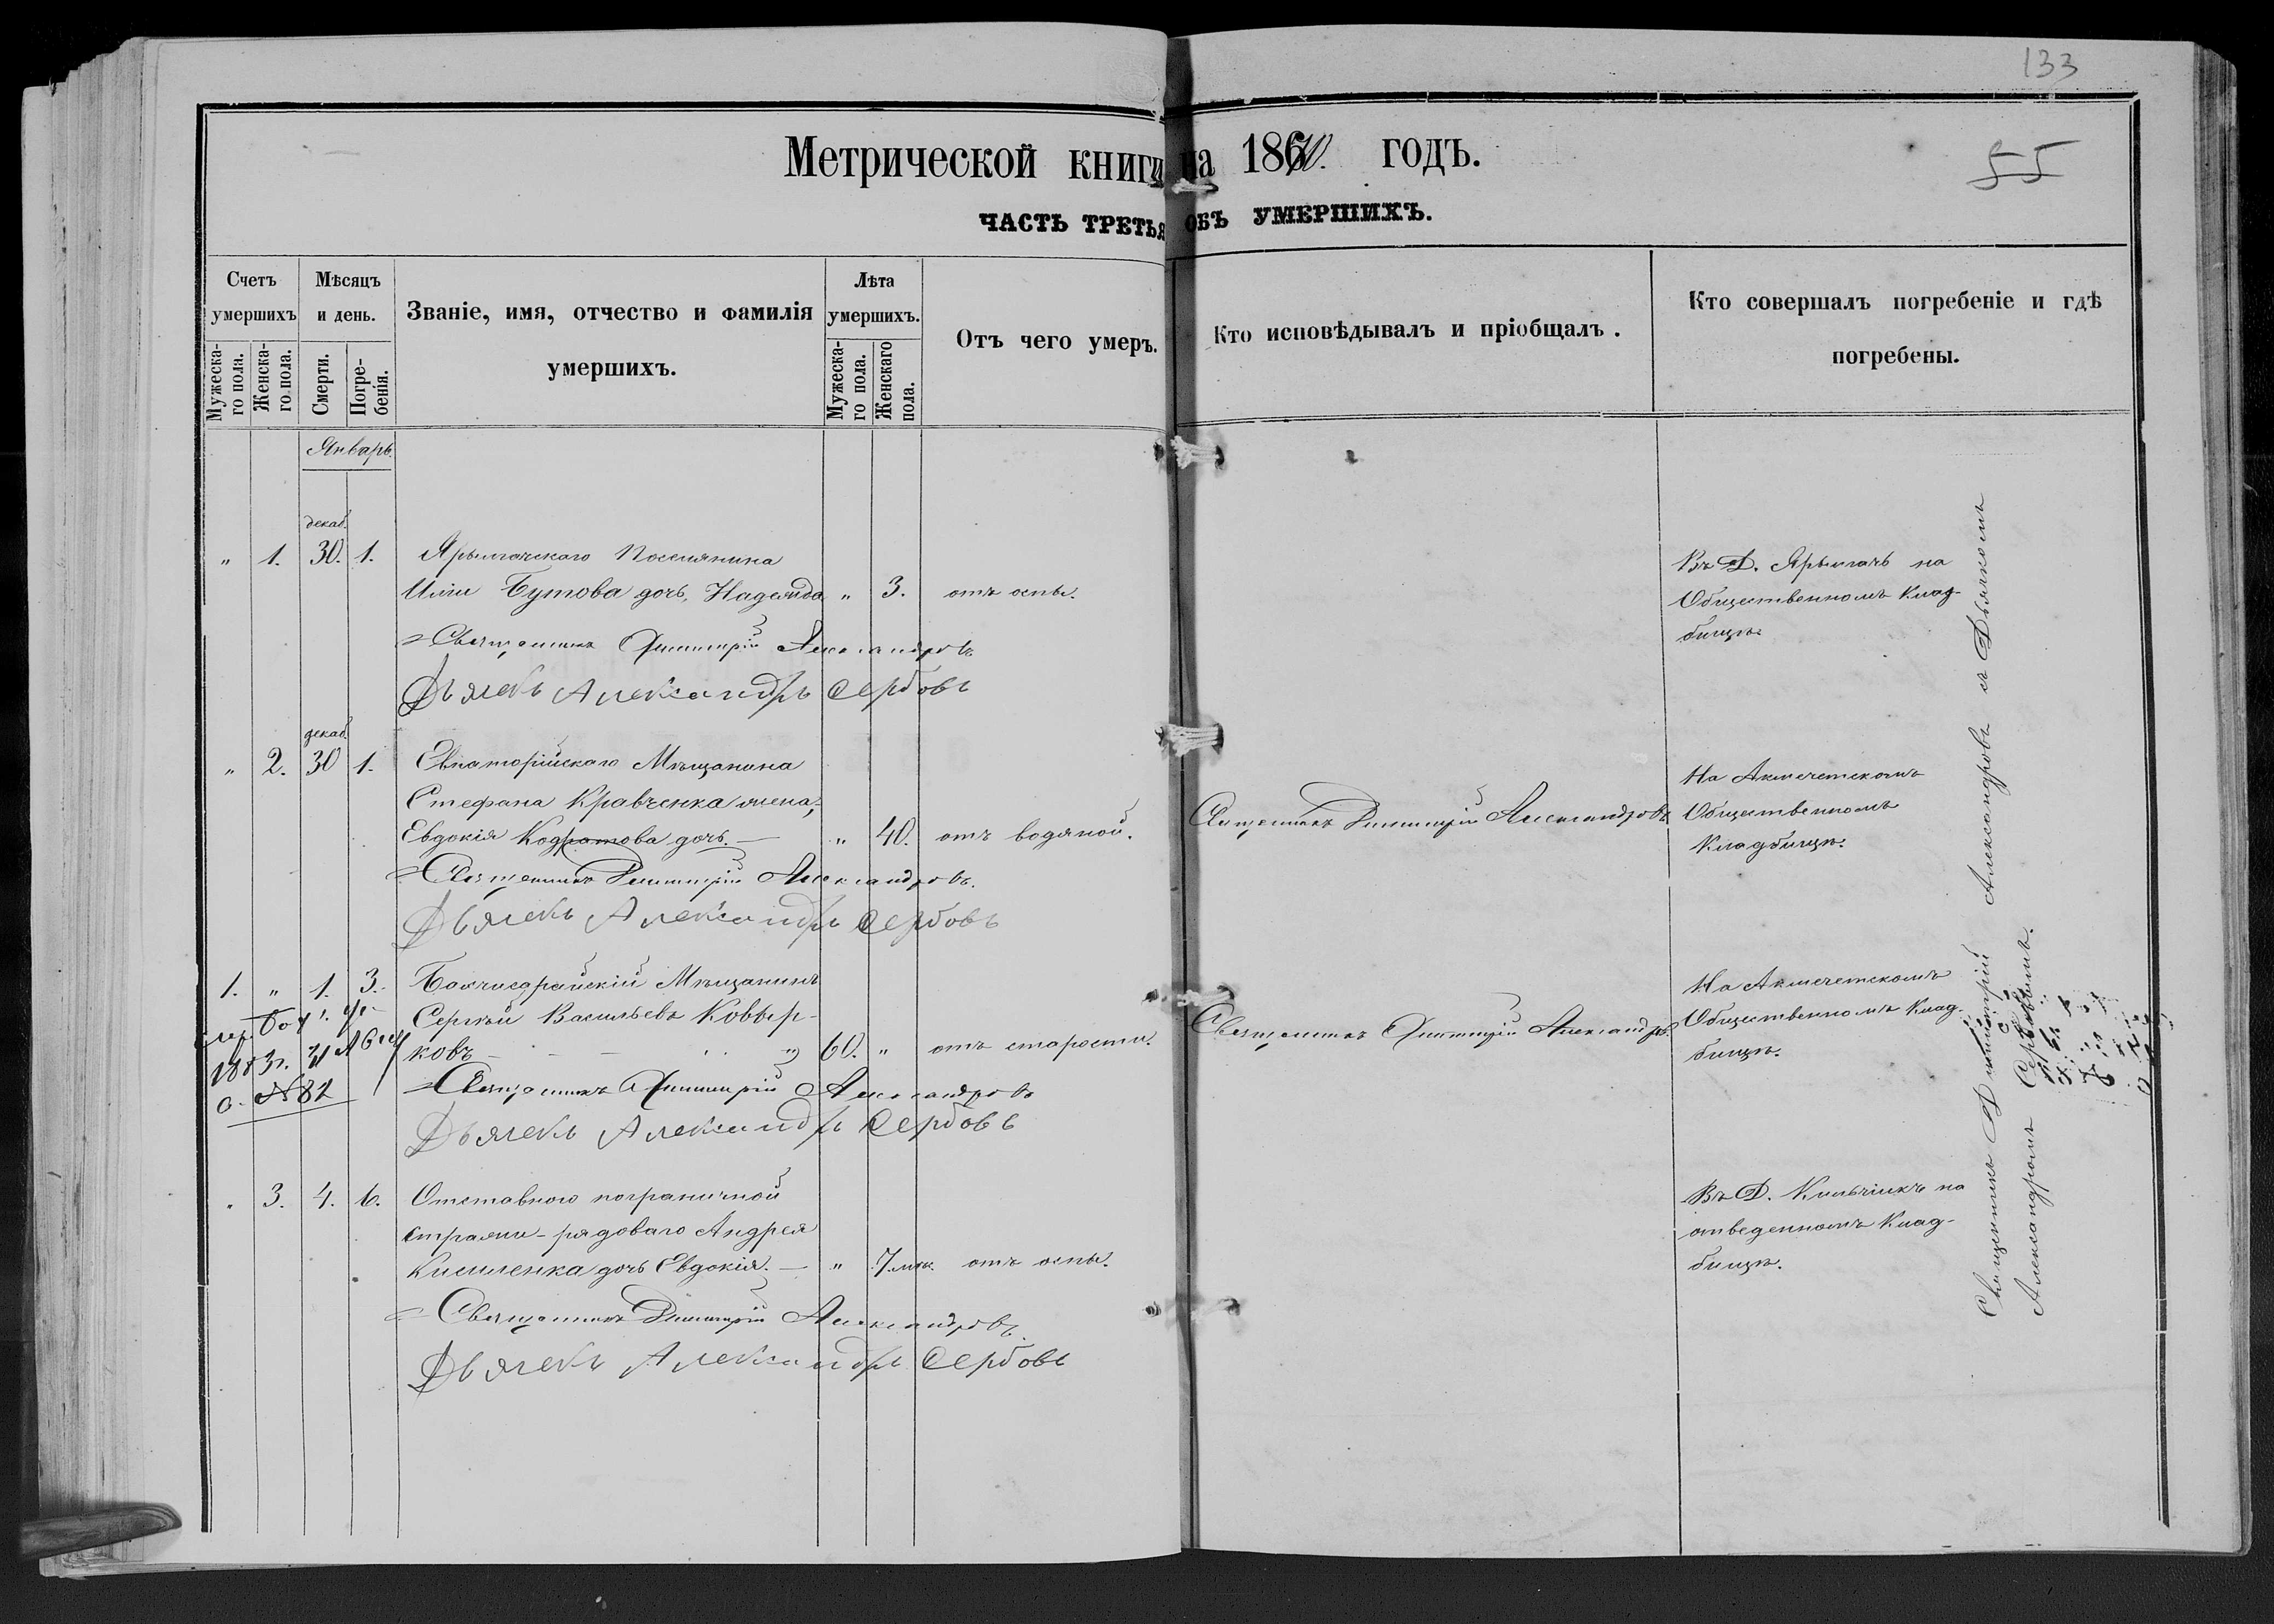 133
55
Метрической книги на 1870. годъ.
ЧАСТЬ ТРЕТЬЯ ОБЪ УМЕРШИХЪ.
Счетъ умершихъ
Мужеска-го пола.
Женска-го пола.
Мѣсяцъ и день.
Смерти.
Погре-бенія.
Званіе, имя, отчество и фамилія умершихъ.
Лѣта умершихъ.
Мужеска-го пола.
Женскаго пола.
Отъ чего умеръ.
Кто исповѣдывалъ и пріобщалъ.
Кто совершалъ погребеніе и гдѣ погребены.
Январь.
декаб.
" 1. 30. 1. Ярылгачскаго Поселянина
Иліи Бутова дочь, Надежда " 3. отъ оспы.
Въ Д. Ярылгачъ на
Общественномъ Клад-
бищѣ.
Священникъ Димитрій Александровъ
Дьячекъ Александръ Сербовъ
декаб.
" 2. 30 1. Евпаторійскаго Мѣщанина
Стефана Кравченка жена,
Евдокія Кодратова дочь. — " 40. отъ водяной.
Священникъ Димитрій Александровъ
На Акмечетскомъ
Общественномъ
Кладбищѣ.
Священникъ Димитрій Александровъ.
Дьячекъ Александръ Сербовъ
1. " 1. 3. Бахчисарайскій Мѣщанинъ
Сергѣй Васильевъ Ковыр-
ковъ 60. " отъ старости.
Священникъ Димитрій Александровъ.
На Акмечетскомъ
Общественномъ Клад-
бищѣ.
№ 82
Священникъ Димитрій Александровъ
Дьячекъ Александръ Сербовъ
" 3. 4. 6. Отставного пограничной
стражи - рядоваго Андрея
Кисиленка дочь Евдокія. — " 7. мѣс. отъ оспы.
Въ Д. Кильчикъ на
отведенномъ Клад-
бищѣ.
Священникъ Димитрій Александровъ
Дьячекъ Александръ Сербовъ
Священникъ Димитрій Александровъ съ Дьячкомъ
Александромъ Сербовымъ.